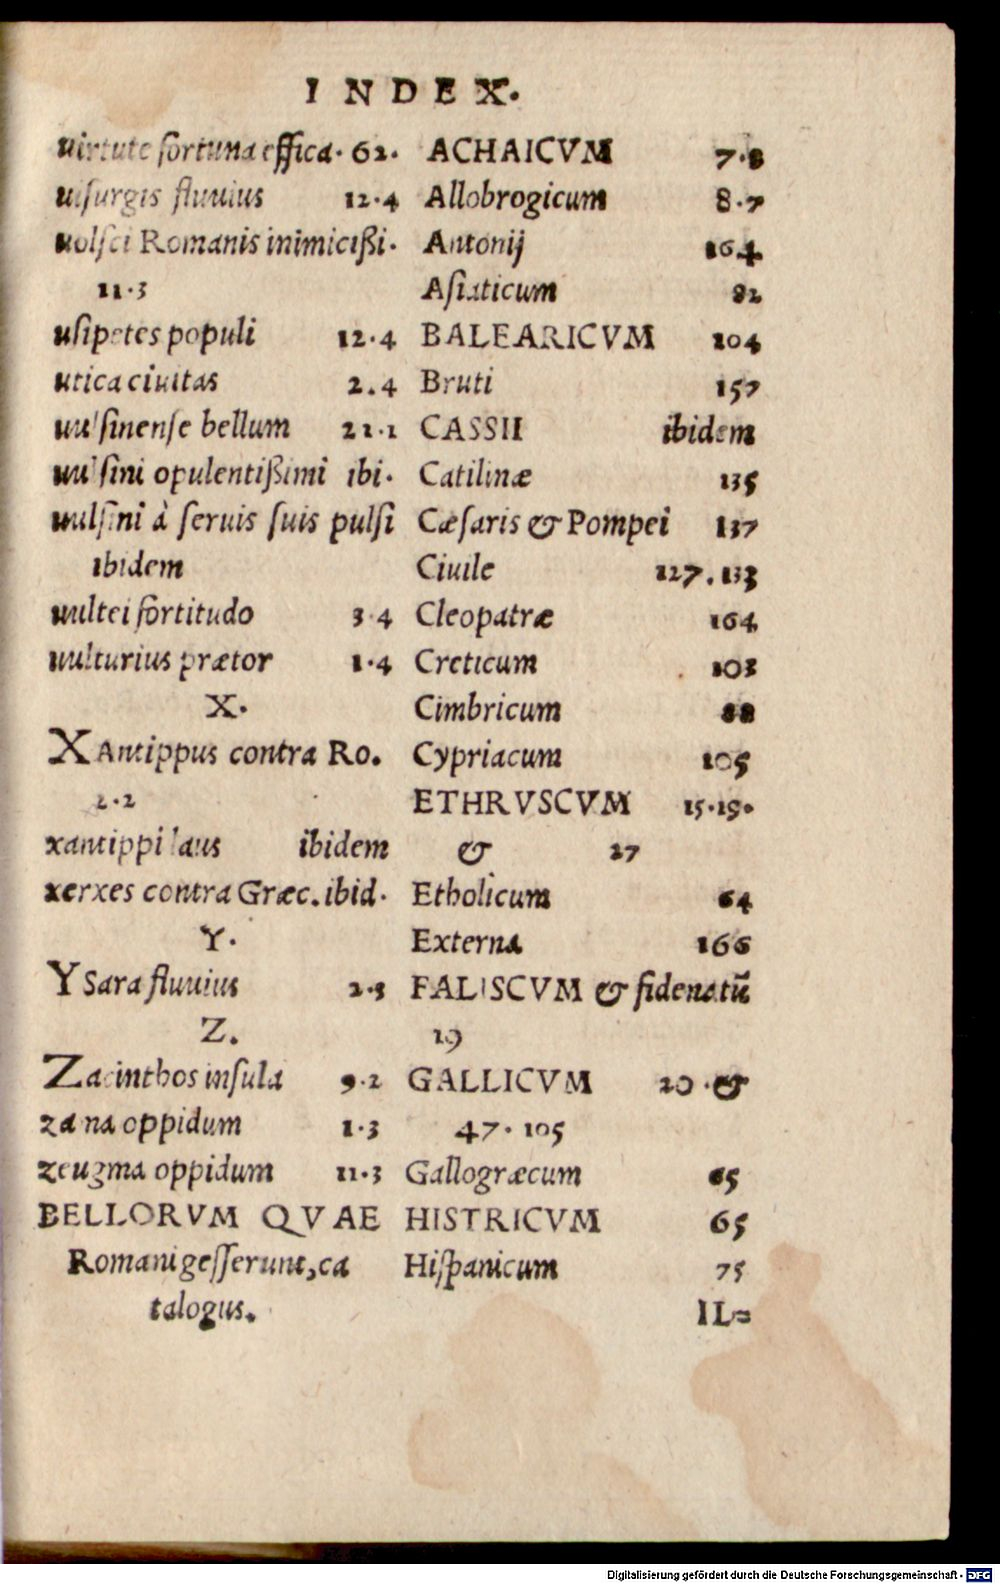 INDEX.
uirtute fortuna effica. 62.
uisurgis fluuius 12.4
uolsci Romanis inimicißi.
11.3
usipetes populi 12.4
utica ciuitas 2.4
uulsinense bellum 21.1
uulsini opulentißimi ibi.
uulsini à seruis suis pulsi
ibidem
uultei fortitudo 3.4
uulturius prætor 1.4
X.
XAntippus contra Ro.
2.2
xantippi laus ibidem
xerxes contra Græc. ibid.
Y.
YSara fluuius 2.3
Z.
Zacinthos insula 9.2
zana oppidum 1.3
zeugma oppidum 11.3
BELLORVM QVAE
Romani gesserunt, ca
talogus.
ACHAICVM 7.8
Allobrogicum 8.7
Antonij 164
Asiaticum 82
BALEARICVM 104
Bruti 157
CASSII ibidem
Catilinæ 135
Cæsaris & Pompei 137
Ciuile 127.133
Cleopatræ 164
Creticum 103
Cimbricum 88
Cypriacum 105
ETHRVSCVM 15.19.
& 27
Etholicum 64
Externa 166
FALISCVM & fidenatū
19
GALLICVM 20.&
47.105
Gallogræcum 65
HISTRICVM 65
Hispanicum 75
IL=
Digitalisierung gefördert durch die Deutsche Forschungsgemeinschaft - DFG